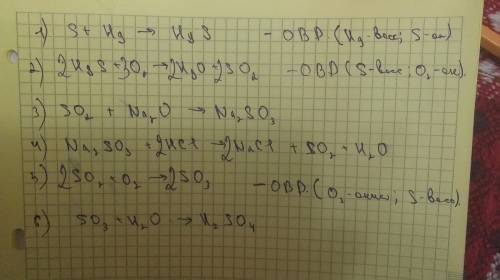 1) S + Hg → HgS - ОВР (Hg-восс; S-ок)
2) 2HgS + 3O₂ → 2HgO + 2SO₂ - ОВР (S-восс; O₂-ок).
3) SO₂ + Na₂O → Na₂SO₃
4) Na₂SO₃ + 2HCl → 2NaCl + SO₂ + H₂O
5) 2SO₂ + O₂ → 2SO₃ - ОВР. (O₂-окисл; S-восс).
6) SO₃ + H₂O → H₂SO₄